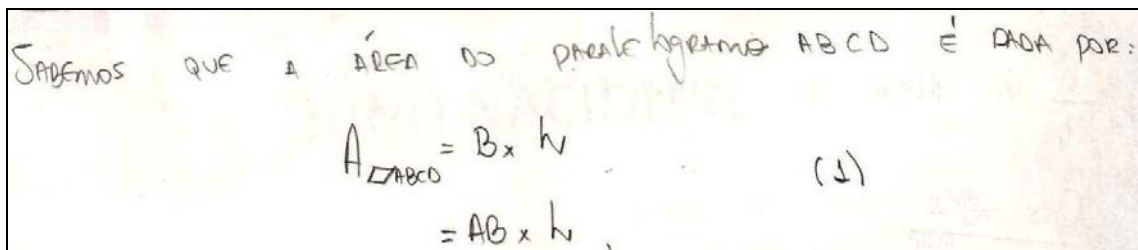 SABEMOS QUE A ÁREA DO PARALELOGRAMO ABCD É DADA POR:
A▱ABCD = B x h
(1)
= AB x h.